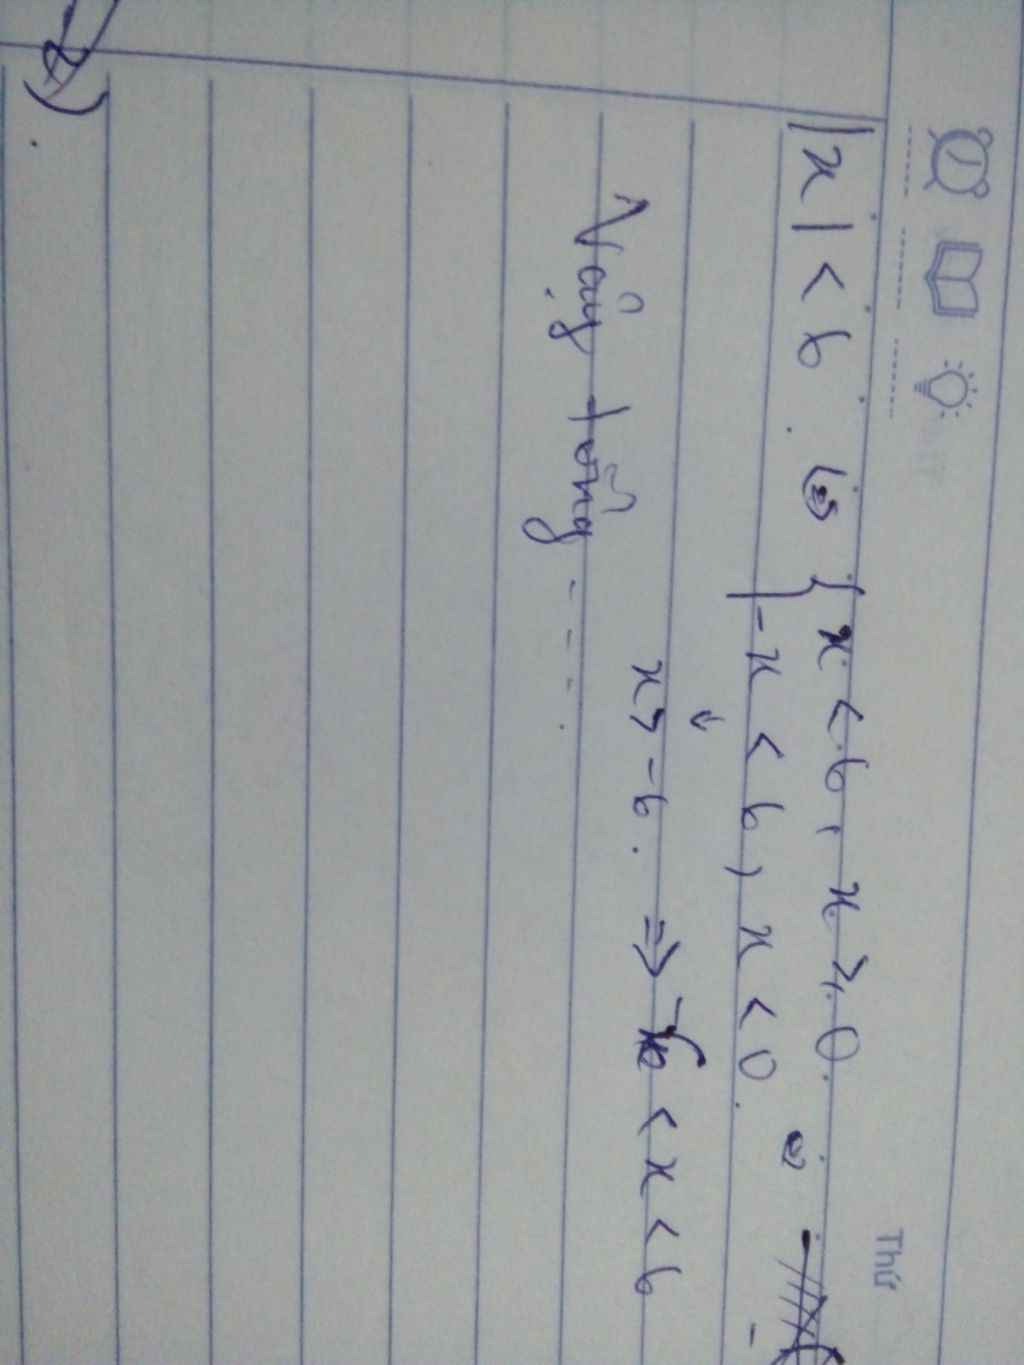 Thứ
|x| < 6 ⇔ { x < 6, x ≥ 0.
-x < 6, x < 0.
↓
x > -6. ⇒ -6 < x < 6
Vậy tổng ....